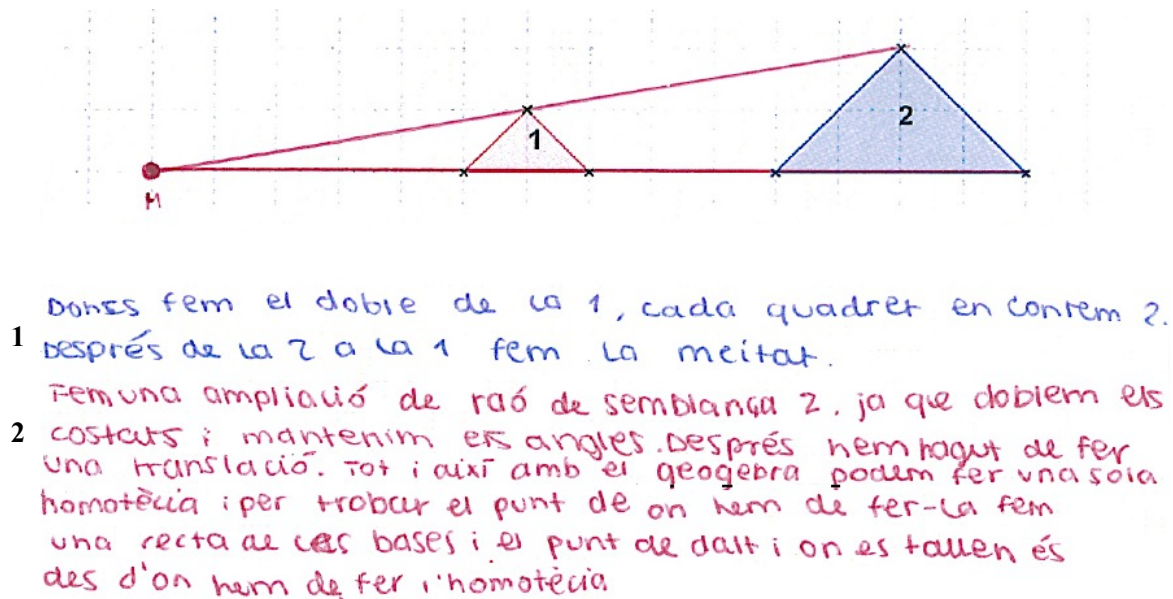 1
2
M
Donss fem el doble de la 1, cada quadret en contem 2.
1
Després de la 2 a la 1 fem la meitat.
Fem una ampliació de raó de semblança 2, ja que doblem els
2
costats i mantenim els angles. Després hem hagut de fer
una translació. Tot i així amb el geogebra podem fer una sola
homotècia i per trobar el punt de on hem de fer-la fem
una recta de les bases i el punt de dalt i on es tallen és
des d'on hem de fer l'homotècia